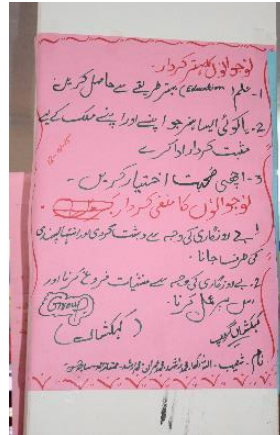 نوجوانوں کا بہتر کردار
1- علم (Education) بہتر طریقے سے حاصل کریں
2- یا کوئی ایسا ہنر جو اپنے اور اپنے ملک کے لیے
مثبت کردار ادا کرے
3- اچھی صحبت اختیار کریں -
نوجوانوں کا منفی کردار
1- بے روزگاری کی وجہ سے دہشت گردی اور انتہا پسندی
کی طرف جانا -
2- بے روزگاری کی وجہ سے منشیات فروغ کرنا اور
اس پر عمل کرنا -
Group
کہکشاں گروپ
نام - شعیب -